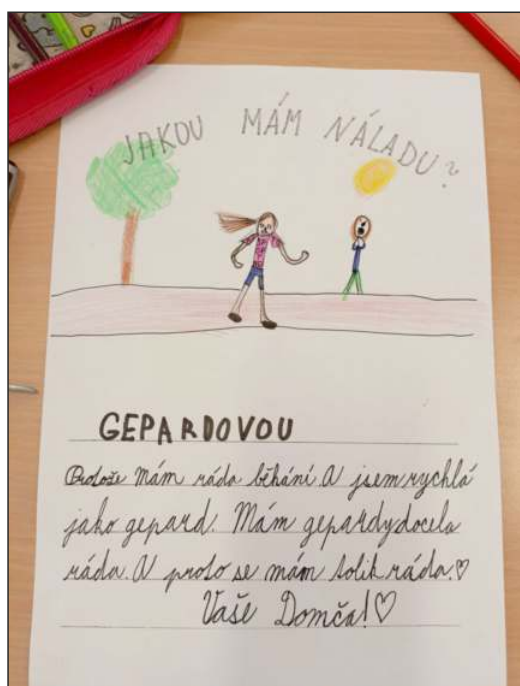 JAKOU MÁM NÁLADU?
GEPARDOVOU
Protože mám ráda běhání A jsem rychlá
jako gepard. Mám gepardy docela
ráda. A proto se mám tolik ráda.♡
Vaše Domča!♡